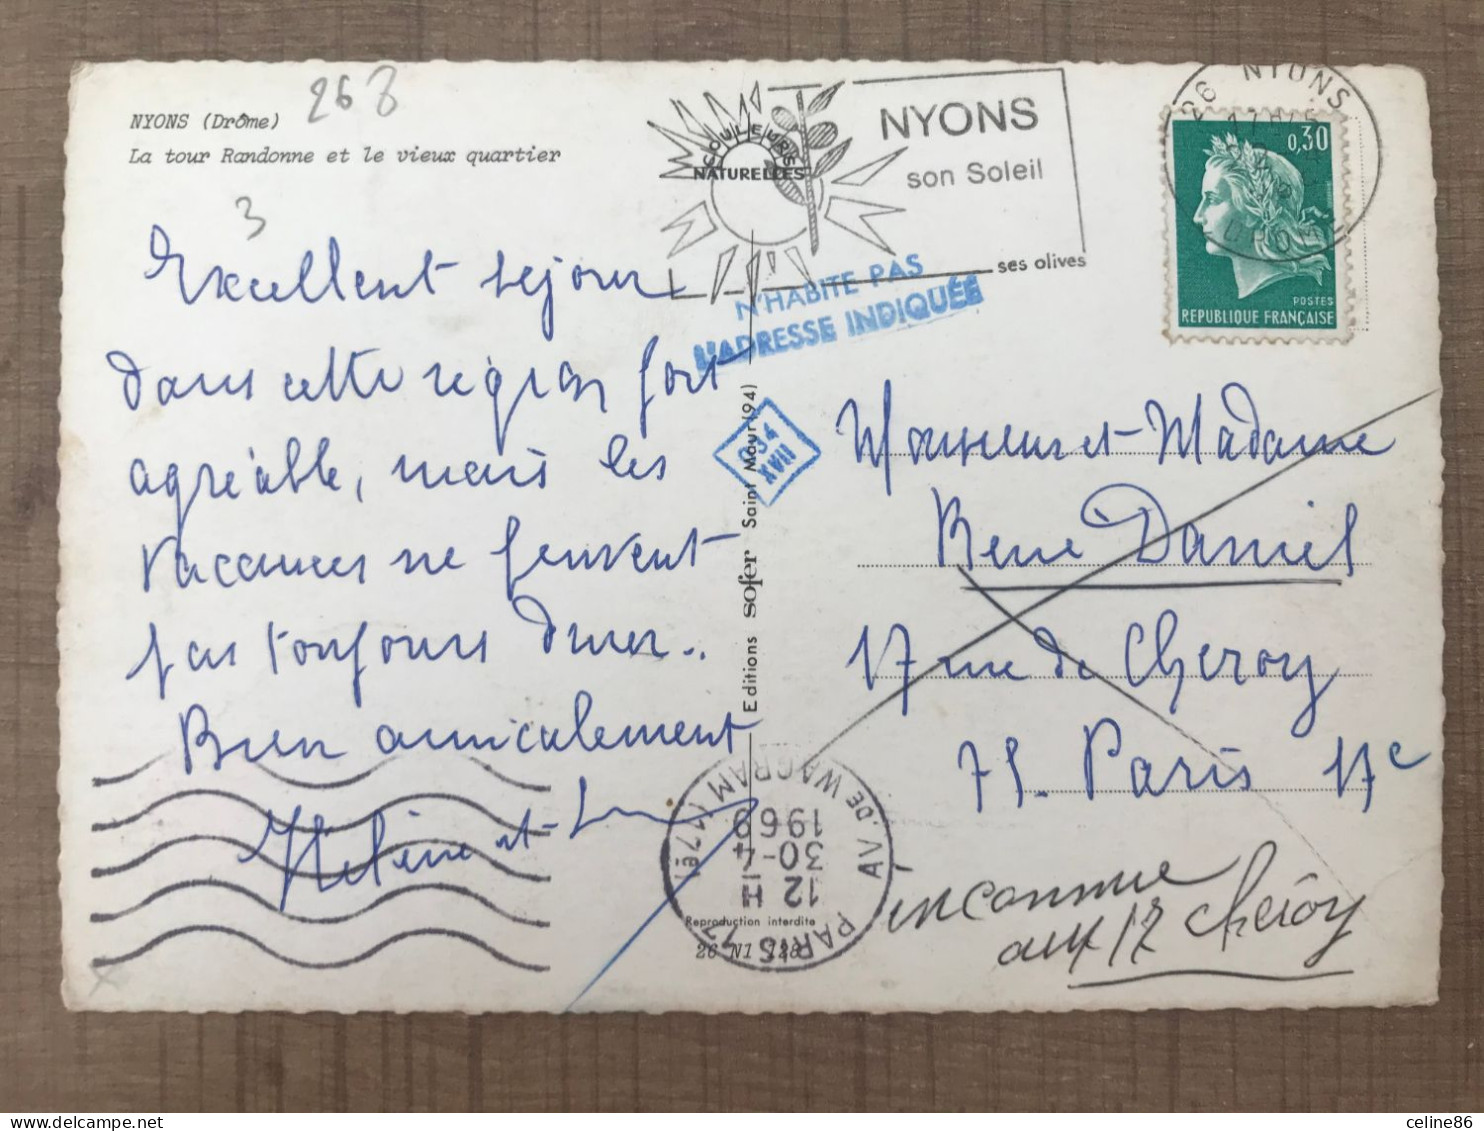 NYONS (Drôme)
268
La tour Randonne et le vieux quartier
3
Excellent séjour
dans cette région fort
agréable, mais les
vacances ne peuvent
pas toujours durer..
Bien amicalement
Hélène et
COULEURS
NATURELLES
NYONS
son Soleil
ses olives
26 NYONS
DROME
0,30
POSTES
REPUBLIQUE FRANÇAISE
N'HABITE PAS
L'ADRESSE INDIQUÉE
034
XVII
Editions sofer Saint Maur (94)
Monsieur et Madame
René Daniel
17 rue de Cheroy
75. Paris 17e
inconnue
aux 17 Cheroy
PARIS
AV. DE WAGRAM (17e)
12 H
30-4
1969
Reproduction interdite
26 N1
celine86